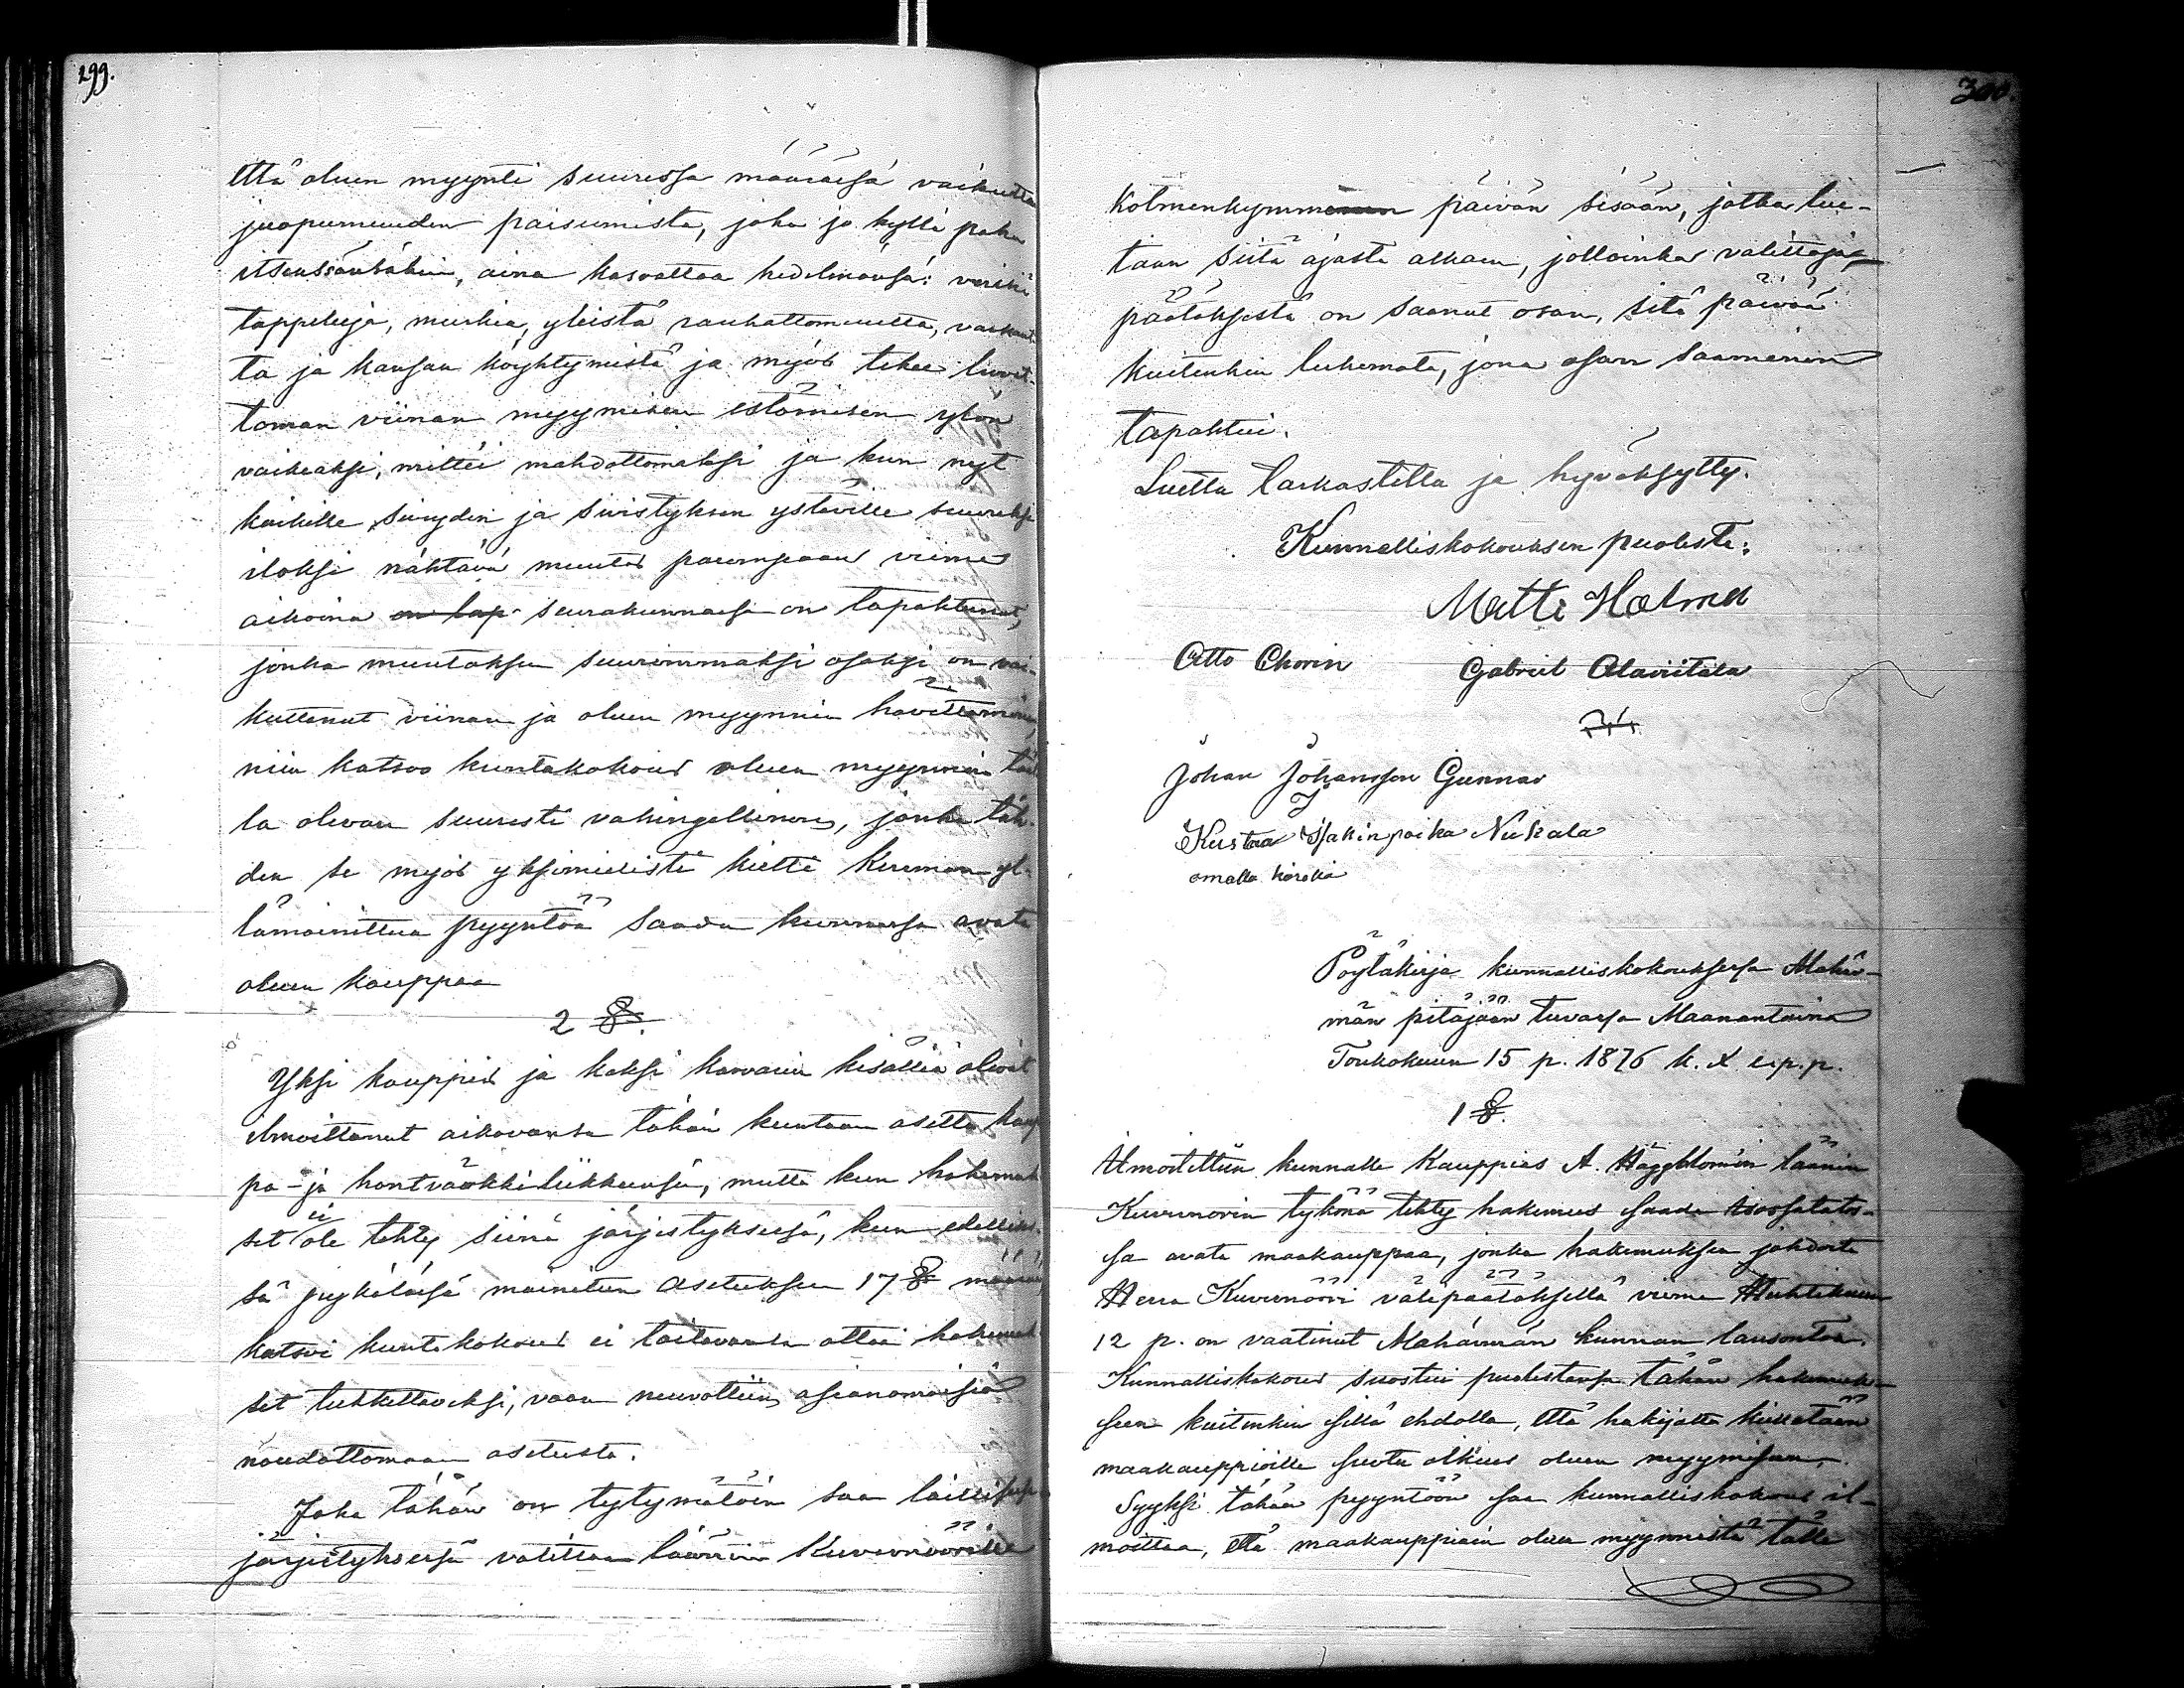 299.
että oluen myynti suuressa määräsä vaikutta
juopumuuden paisumista, joka jo kyllä paha
itsensäsäkin, aina kasvattaa hedelmänsä: verisiä
tappeluja, murhia, yleistä rauhattomuutta, varkaut-
ta ja kansan köyhtymistä ja myös tekee luvat-
toman viinan myymisen estämisen ylön
vaikeaksi, miltei mahdottomaksi ja kun nyt
kaikille siivyden ja sivistyksen ystäville suureksi
iloksi nähtävä muutos parempaan viime
aikoina on tap seurakunnasa on tapahtunut,
jonka muutoksen suurimmaksi osaksi on vai-
kuttanut viinan ja oluen myynnin hävittäminen,
niin katsoo kuntakokous oluen myynnin tääl
la olevan suuresti vahingollinen, jonka täh-
den se myös yksimielisesti kielti Kireman yl-
lämainittua pyyntöä saada kunnassa avata
oluen kauppaa
2 §.
Yksi kauppias ja kaksi karvarin kisälliä olivat
ilmoittanut aikovansa tähän kuntaan asettaa kaup
pa- ja hantvärkkiliikkeensä, mutta kun hakemuk
set ei ole tehty siinä järjestyksesä, kuin edellises-
sä pykäläsä mainitun asetuksen 17 § määrää,
katsoi kuntakokous ei taitavansa ottaa hakemuk
set tutkittavaksi, vaan neuvottiin asianomaisia
noudattamaan asetusta.
Joka tähän on tytymätöin saa laillisesa
järjestyksesä valittaa läänin Kuvernöörille
300.
Kolmenkymmenen päivän sisään, jotka lue-
taan siitä ajasta alkaen, jolloinka valittaja
päätöksestä on saanut osan, sitä päivää
kuitenkin lukemata, jona osan saaminen
tapahtui.
Luettu tarkastettu ja hyväksytty.
Kunnalliskokouksen puolesta:
Matti Holma
Otto Chorin Gabriel Alaviitala
Johan Johansson Gunnar
Kustaa Isakinpoika Niskala
omalla kädellä
Pöytäkirja kunnalliskokouksesa Mahän-
män pitäjään tuvassa Maanantaina
Toukokuun 15 p. 1876 k. 2 e.p.p.
1 §.
Ilmoitettiin kunnalle Kauppias A. Häggblomin läänin
Kuvernörin tykönä tehty hakemus saada
sa avata maakauppaa, jonka hakemuksen johdosta
Herra Kuvernööri välipäätöksellä viime Huhtikuun
12 p. on vaatinut Mahänmän kunnan lausuntoa.
Kunnalliskokous suostui puolestansa tähän hakemuk-
seen kuitenkin sillä ehdolla, että hakijalta kielletään
maakauppioille suotu oikeus oluen myymiseen,
Syyksi tähän pyyntöön saa kunnalliskokous il-
moittaa, että maakauppiain oluen myynnistä tälle